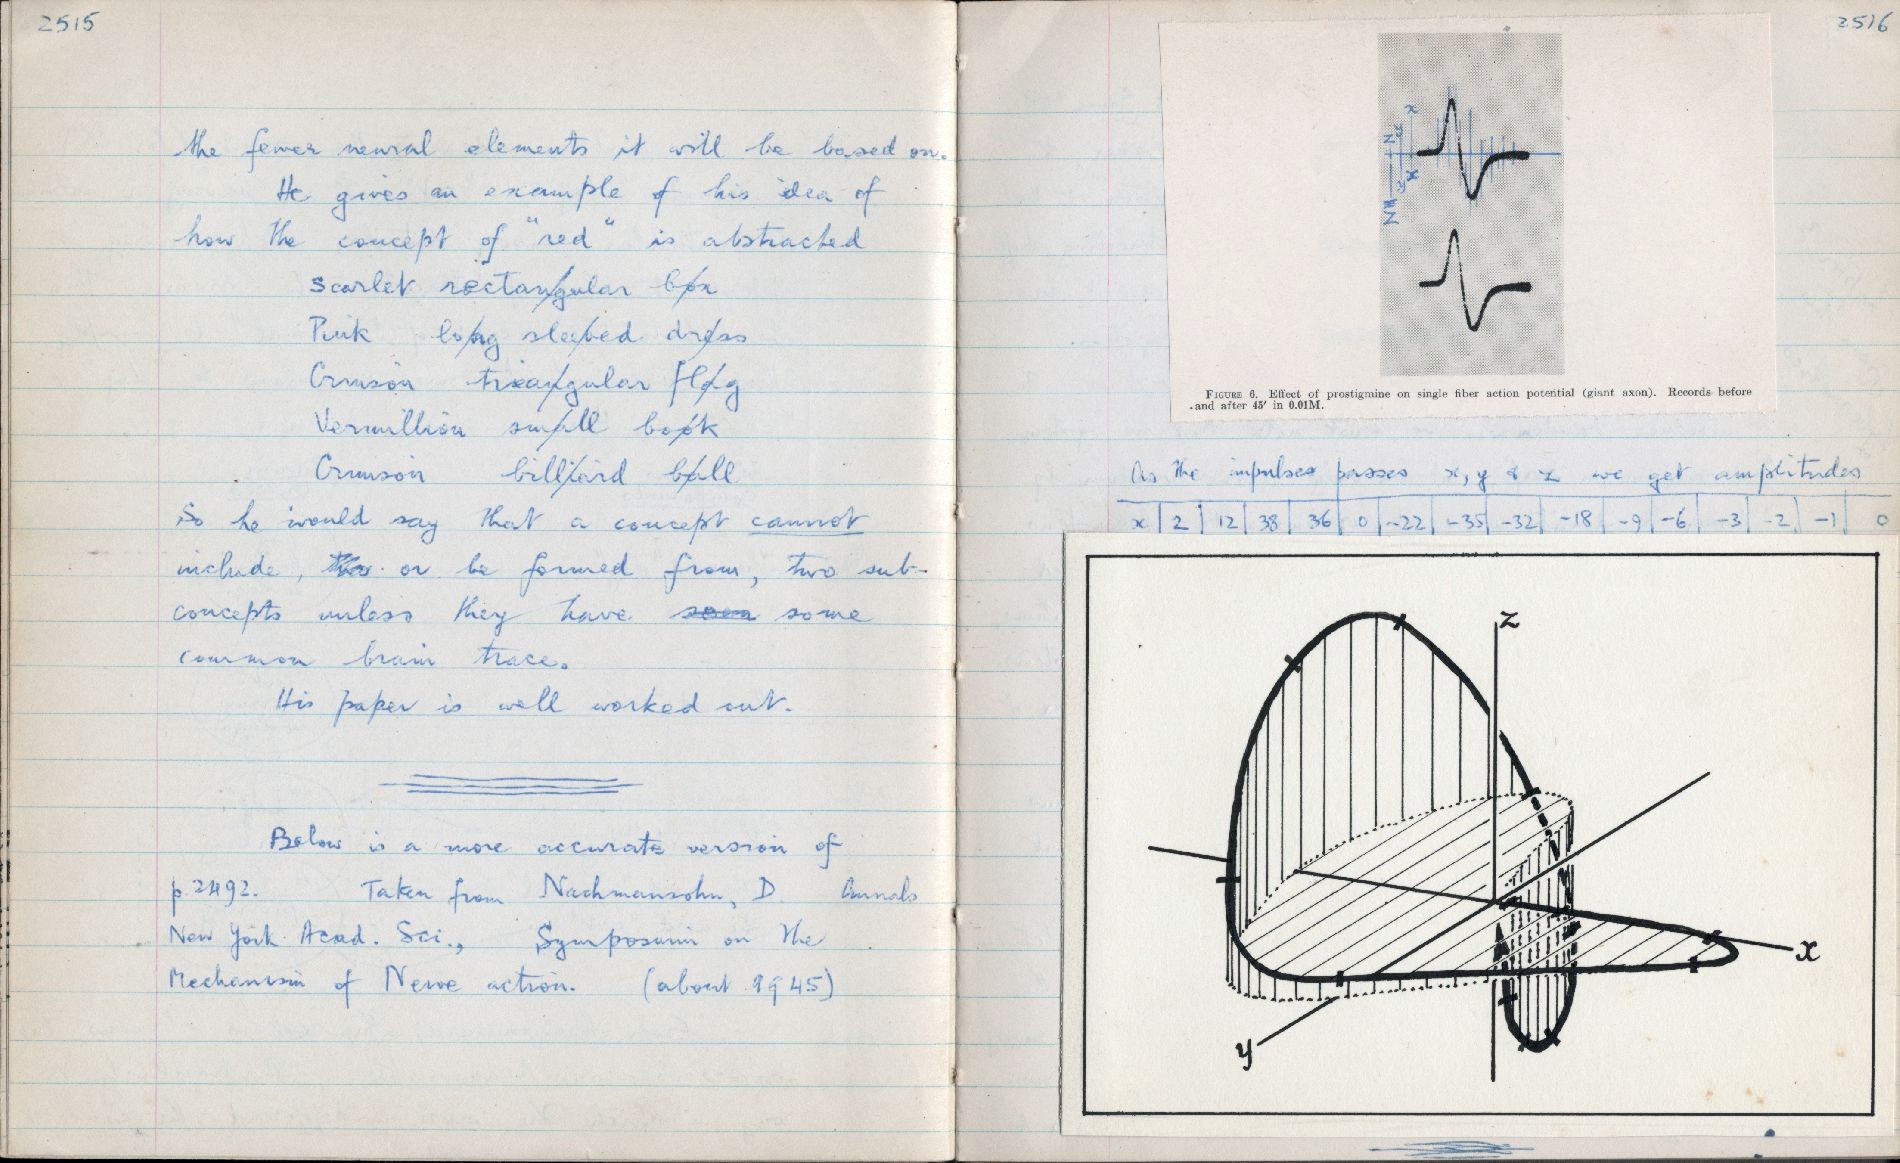 2515
the fewer neural elements it will be based on.
He gives an example of his idea of
how the concept of "red" is abstracted
Scarlet rectangular box
Pink long sleeved dress
Crimson triangular flag
Vermillion small book
Crimson billiard ball
So he would say that a concept cannot
include, or be formed from, two sub-
concepts unless they have some
common brain trace.
His paper is well worked out.
Below is a more accurate version of
p. 2492. Taken from Nachmansohn, D. Annals
New York Acad. Sci., Symposium on the
Mechanism of Nerve action. (about 1945)
2516
FIGURE 6. Effect of prostigmine on single fiber action potential (giant axon). Records before
and after 45' in 0.01M.
As the impulse passes x, y & z we get amplitudes
x 2 12 38 36 0 -22 -35 -32 -18 -9 -6 -3 -2 -1 0
z
x
y